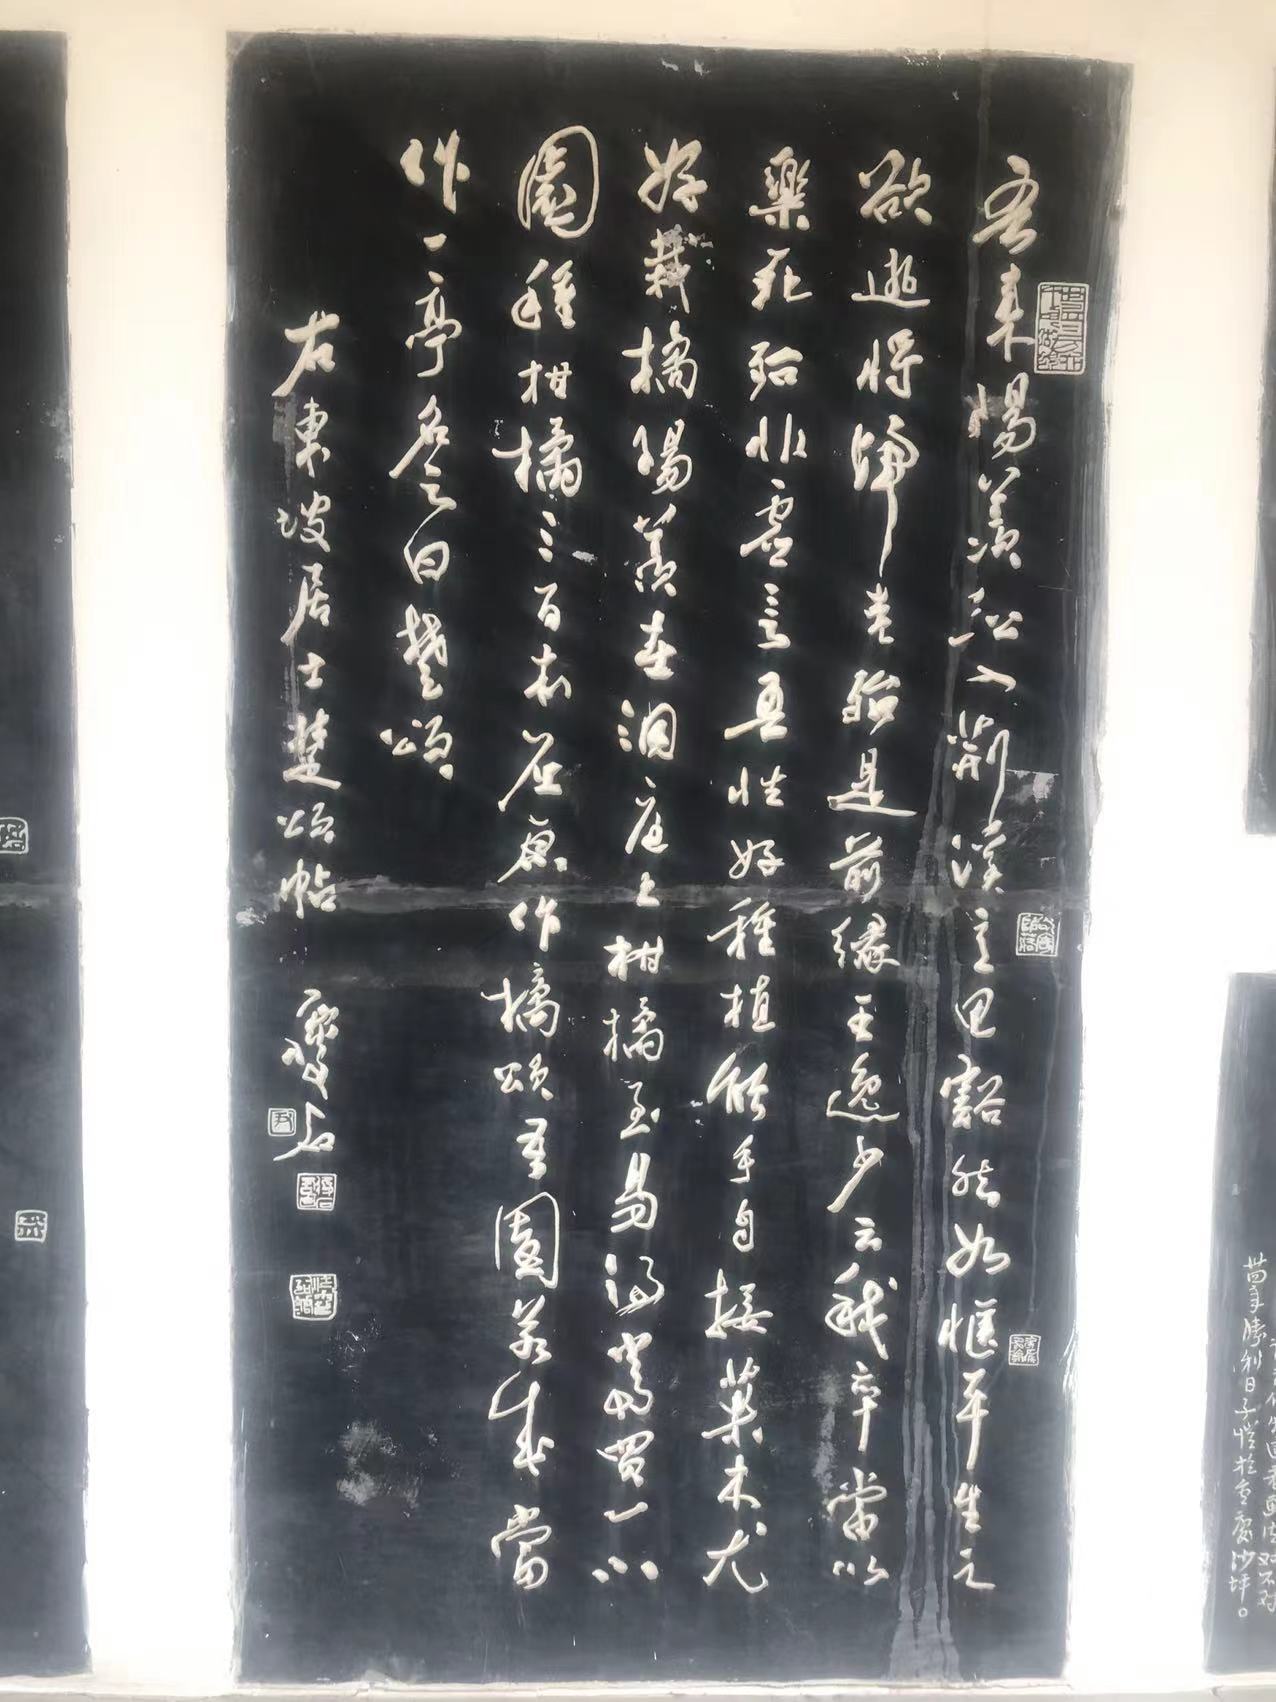 吾来陽羡舩入荆溪意思豁然如愜平生之
欲逝將歸老殆是前緣王逸少云我卒當以
樂死殆非虚言吾性好種植能手自接菓木尤
好栽橘陽羡在洞庭上柑橘至易得當買一小
園種柑橘三百本屈原作橘頌吾園若成當
作一亭名之曰楚頌
右東坡居士楚頌帖
勝利日子愷於重慶沙坪。